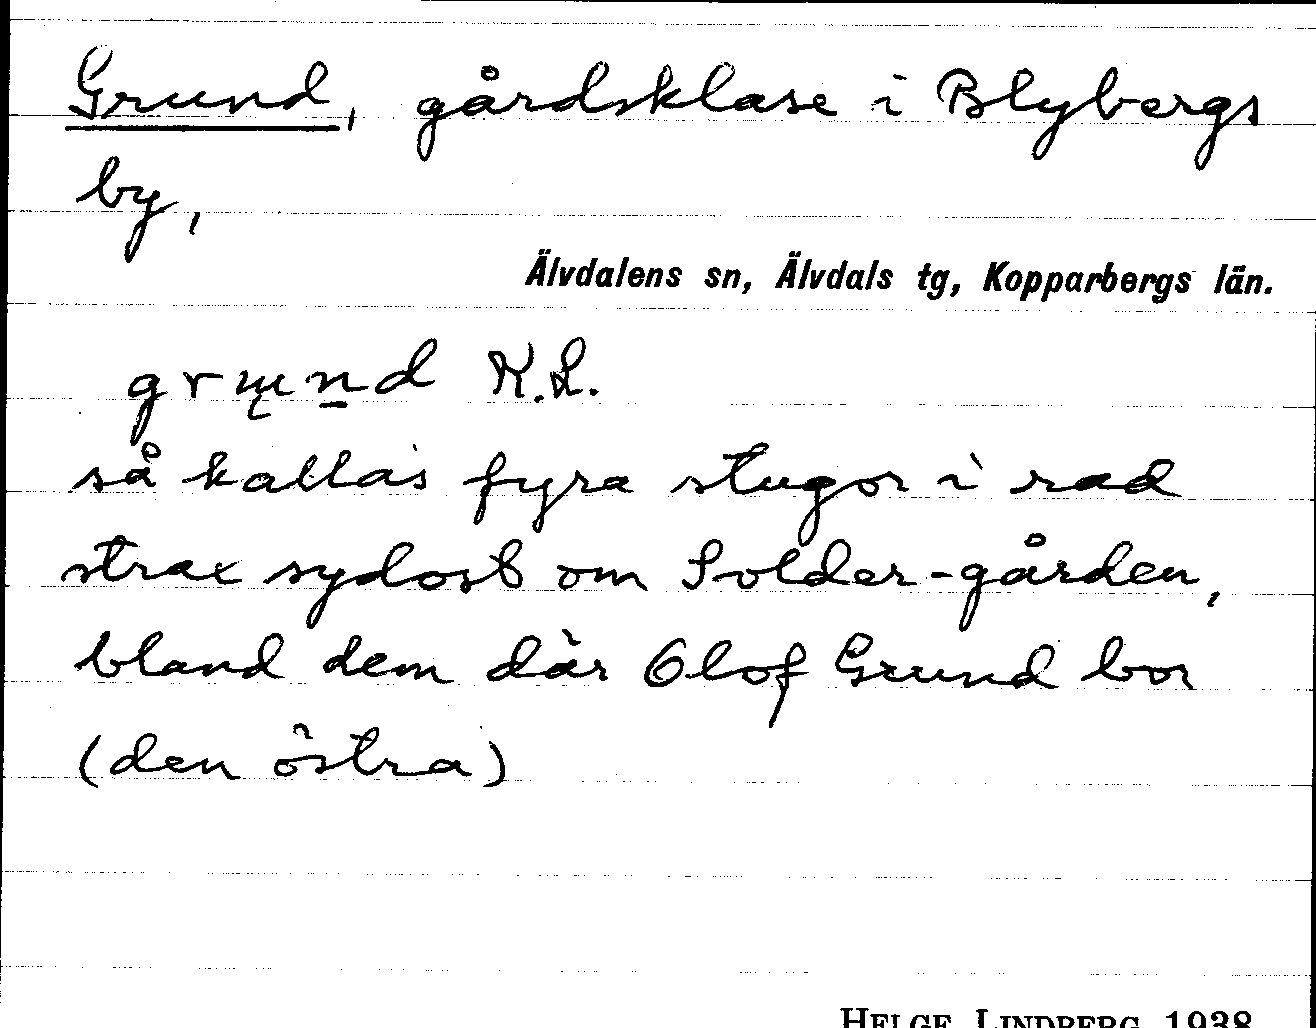 Grund, gårdsklase i Blybergs
by,
Älvdalens sn, Älvdals tg, Kopparbergs län.
grund K.L.
så kallas fyra stugor i rad
strax sydost om Solder-gården,
bland dem där Olof Grund bor
(den östra)
HELGE LINDBERG 1938